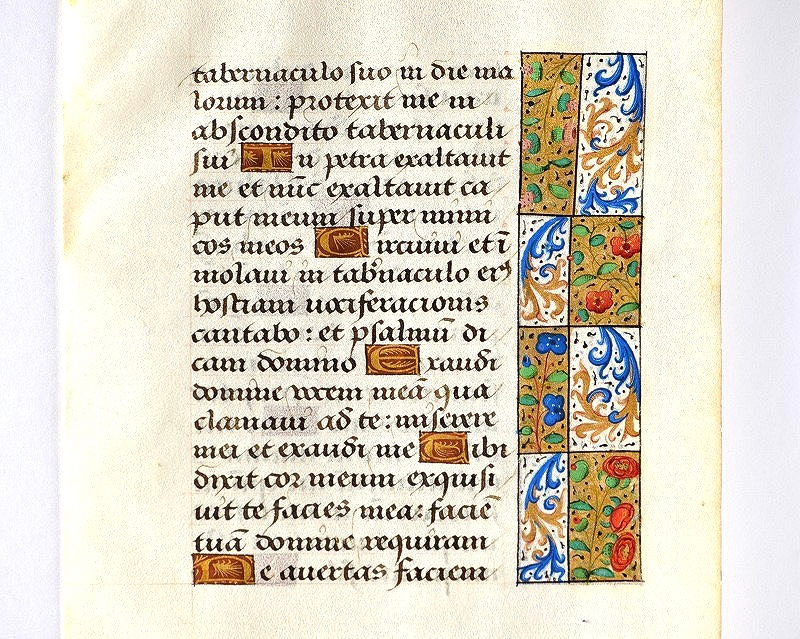 tabernaculo suo in die ma
lorum : protexit me in
abscondito tabernaculi
sui In petra exaltauit
me et nūc exaltauit ca
put meum super inimi
cos meos Circuiui et ī
molaui in tab̄naculo eiꝰ
hostiam uociferacionis
cantabo : et psalmū di
cam domino Exaudi
domine vocem meā qua
clamaui ad te : miserere
mei et exaudi me Tibi
dixit cor meum exquisi
uit te facies mea : faciē
tuā domine requiram
Ne auertas faciem